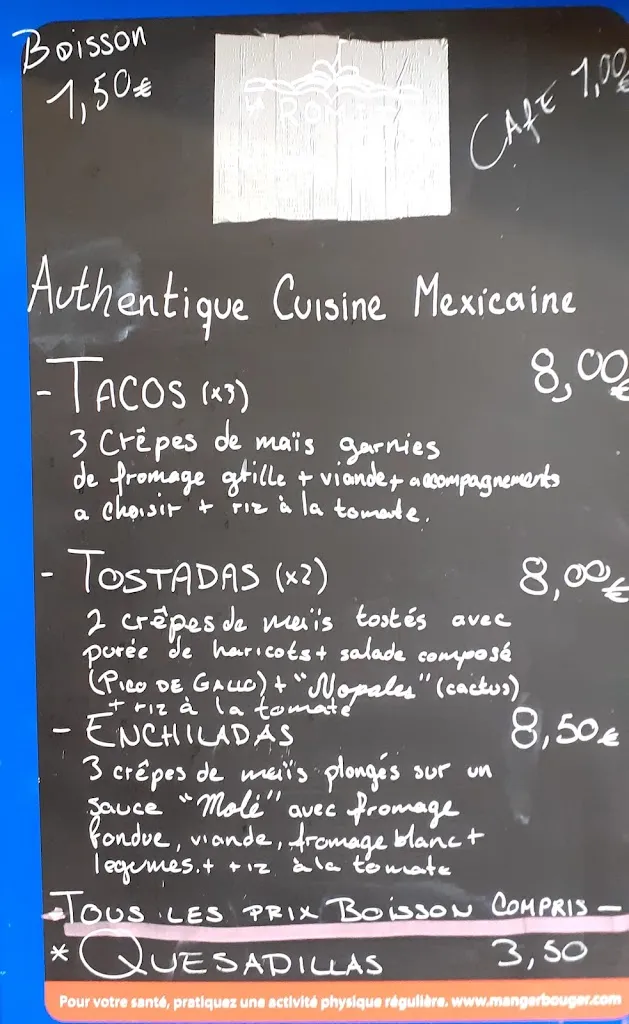 Boisson
1,50€
CAFE 1,00€
Authentique Cuisine Mexicaine
- TACOS (x3) 8,00€
3 Crêpes de maïs garnies
de fromage grille + viande + accompagnements
a choisir + riz à la tomate.
- TOSTADAS (x2) 8,00€
2 crêpes de maïs tostés avec
purée de haricots + salade composé
(PICO DE GALLO) + "Nopales" (cactus)
+ riz à la tomate
- ENCHILADAS 8,50€
3 crêpes de maïs plongés sur un
sauce "Molé" avec fromage
fondue, viande, fromage blanc +
legumes. + riz à la tomate
- TOUS LES PRIX BOISSON COMPRIS -
* QUESADILLAS 3,50
Pour votre santé, pratiquez une activité physique régulière. www.mangerbouger.com